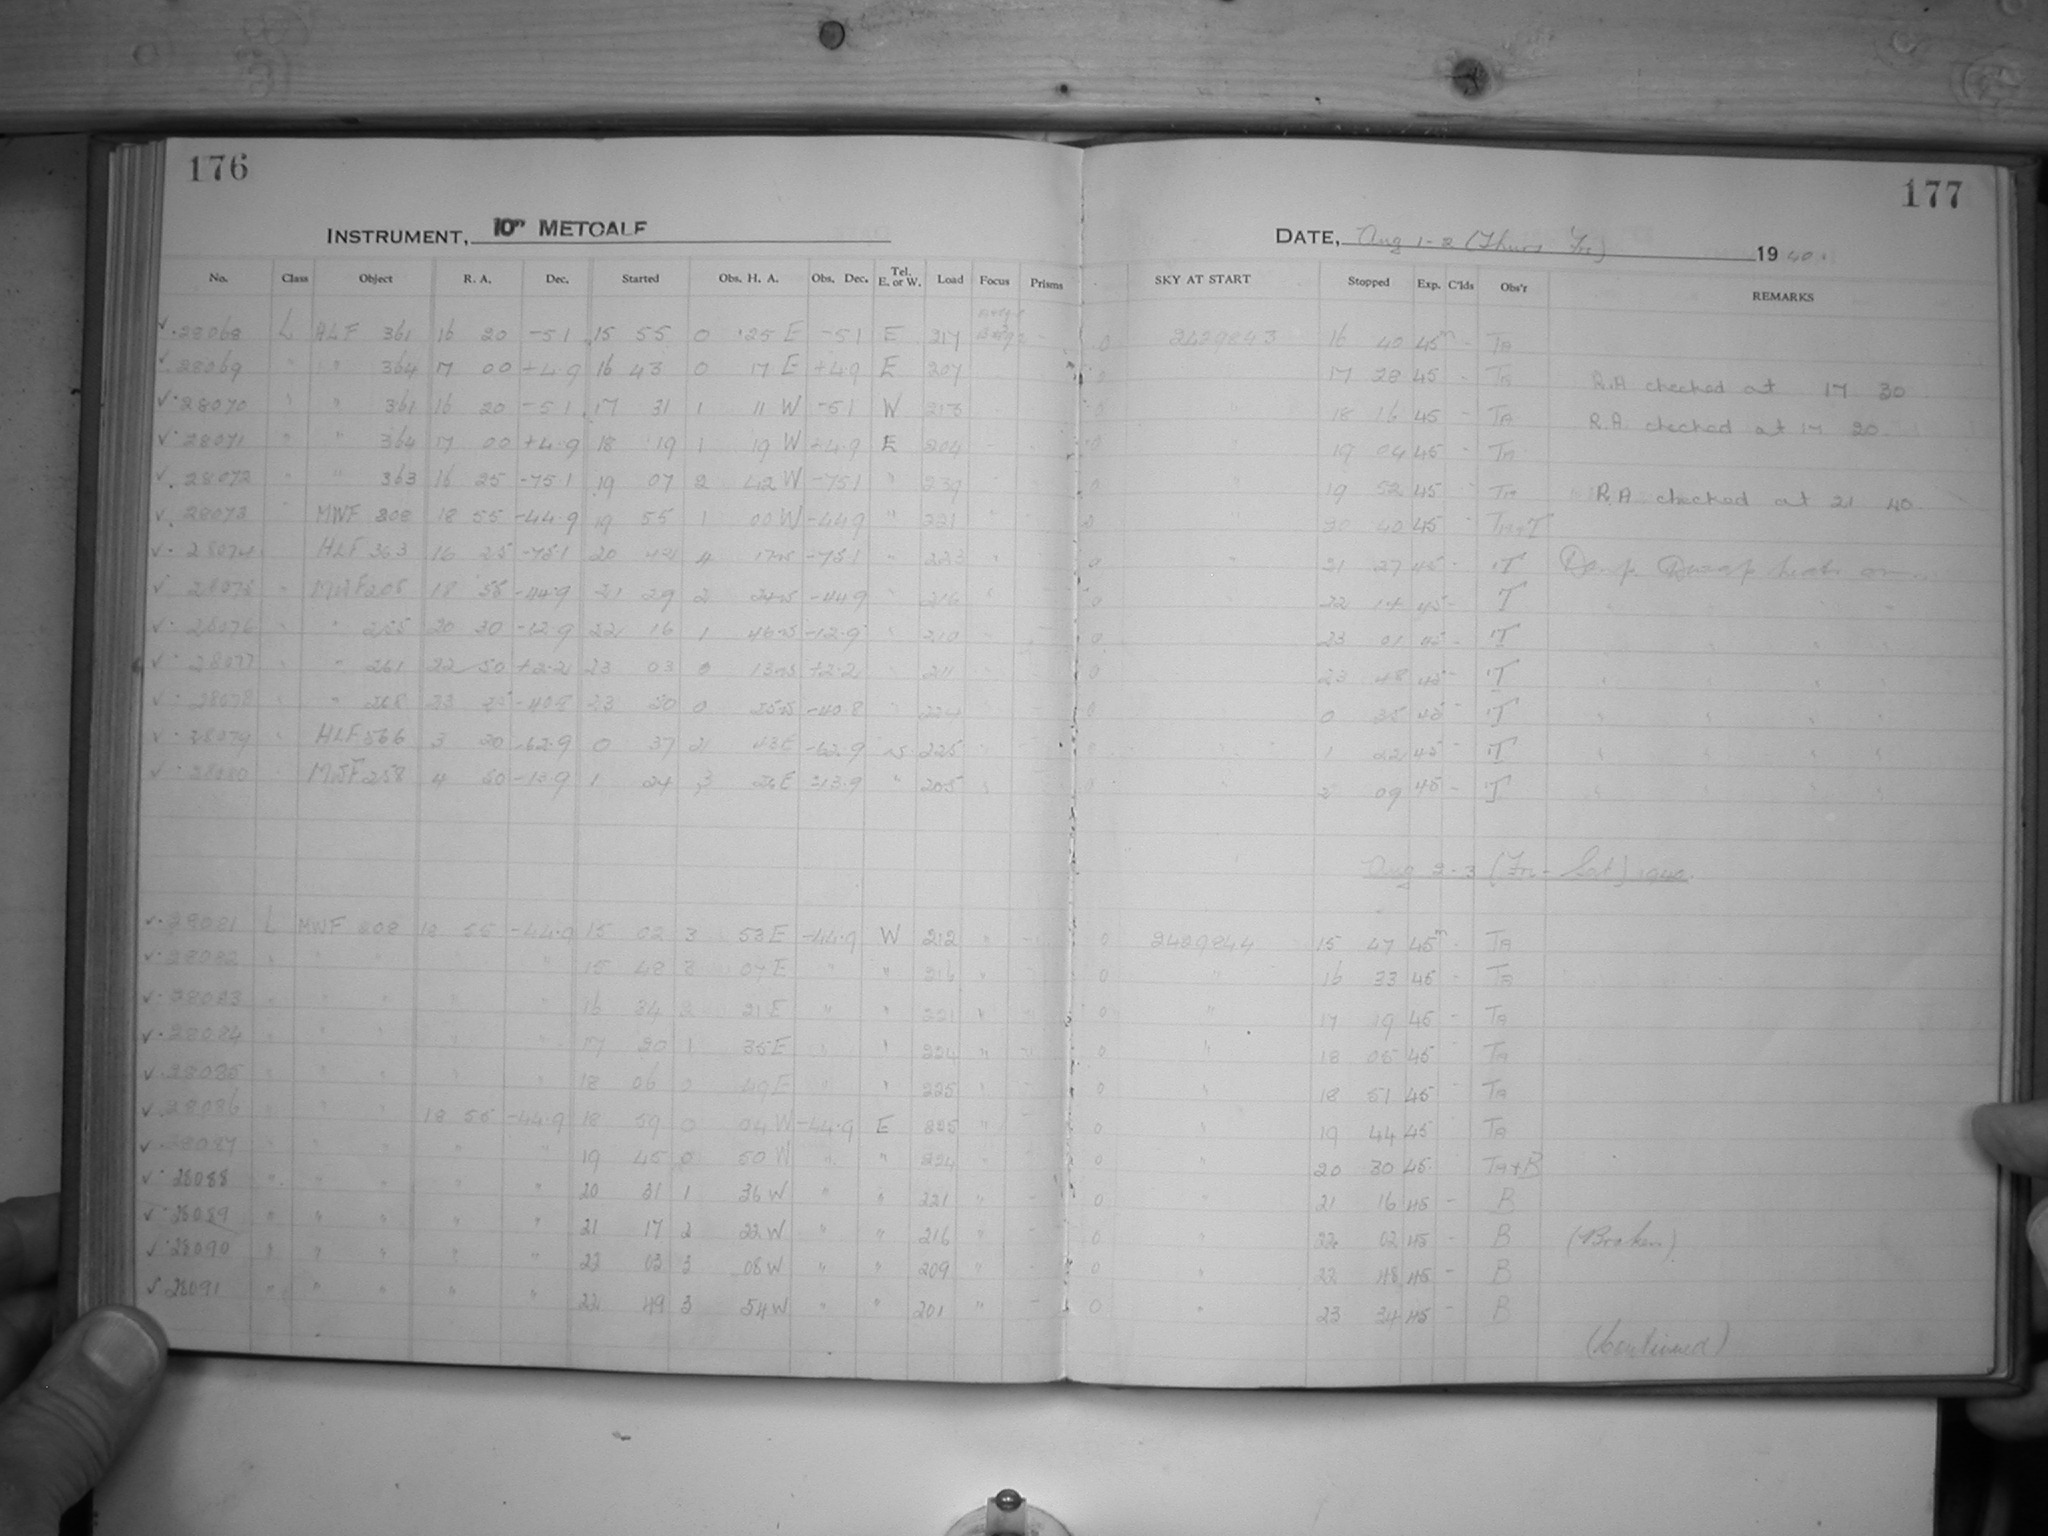 176
177
INSTRUMENT, 10" METCALF
DATE, Aug 1-2 (Thurs Fri) 1940.
No. Class Object R. A. Dec. Started Obs. H. A. Obs. Dec. Tel. E. or W. Load Focus Prisms SKY AT START Stopped Exp. C'lds Obs'r REMARKS
28068 L HLF 361 16 20 -51 15 55 0 25 E -51 E 217 0 2429843 16 40 45m - TA
28069 " " 364 17 00 +4.9 16 43 0 17 E +4.9 E 207 0 17 28 45 - TA R.A checked at 17 30
28070 " " 361 16 20 -51 17 31 1 11 W -51 W 213 0 " 18 16 45 - TA R.A. checked at 17 20
28071 " " 364 17 00 +4.9 18 19 1 19 W +4.9 E 204 0 " 19 04 45 - TA
28072 " " 363 16 25 -75.1 19 07 2 42 W -75.1 " 239 0 " 19 52 45 - TA R.A checked at 21 40
28073 MWF 208 18 55 -44.9 19 55 1 00 W -44.9 " 221 0 " 20 40 45 - TA+T
28074 HLF 363 16 25 -75.1 20 42 4 -75.1 " 223 0 " 21 27 45 - T
28075 " MWF 208 18 55 -44.9 21 29 2 -44.9 " 216 0 22 14 45 - T
28076 " " 255 20 30 -12.9 22 16 1 -12.9 " 210 0 23 01 45 - T
28077 " " 261 22 50 +2.2 23 03 0 +2.2 " 211 0 23 48 45 - T
28078 " " 268 23 -40.8 23 50 0 -40.8 " 224 0 0 35 45 - T
28079 " HLF 366 3 20 -62.9 0 37 2 43 E -62.9 W 225 0 1 22 45 - T
28080 MWF 258 4 50 -13.9 1 24 3 26 E -13.9 " 205 0 2 09 45 - T
Aug 2-3 (Fri - Sat) 1940.
28081 L MWF 208 18 55 -44.9 15 02 3 53 E -44.9 W 212 " - 0 2429844 15 47 45m - TA
28082 " " " " " 15 48 3 07 E " " 216 " 0 " 16 33 45 - TA
28083 " " " " " 16 34 2 21 E " " 221 " 0 " 17 19 45 - TA
28084 " " " " " 17 20 1 35 E " " 224 " 0 " 18 05 45 TA
28085 " " " " " 18 06 0 49 E " " 225 " 0 " 18 51 45 TA
28086 " " " 18 55 -44.9 18 59 0 04 W -44.9 E 225 " 0 " 19 44 45 TA
28087 " " " " " 19 45 0 50 W " " 224 " 0 " 20 30 45 TA+B
28088 " " " " " 20 31 1 36 W " " 221 " - 0 " 21 16 45 - B
28089 " " " " " 21 17 2 22 W " " 216 " - 0 " 22 02 45 - B (Broken)
28090 " " " " " 22 03 3 08 W " " 209 " - 0 " 22 48 45 - B
28091 " " " " " 22 49 3 54 W " " 201 " - 0 " 23 34 45 - B
(Continued)